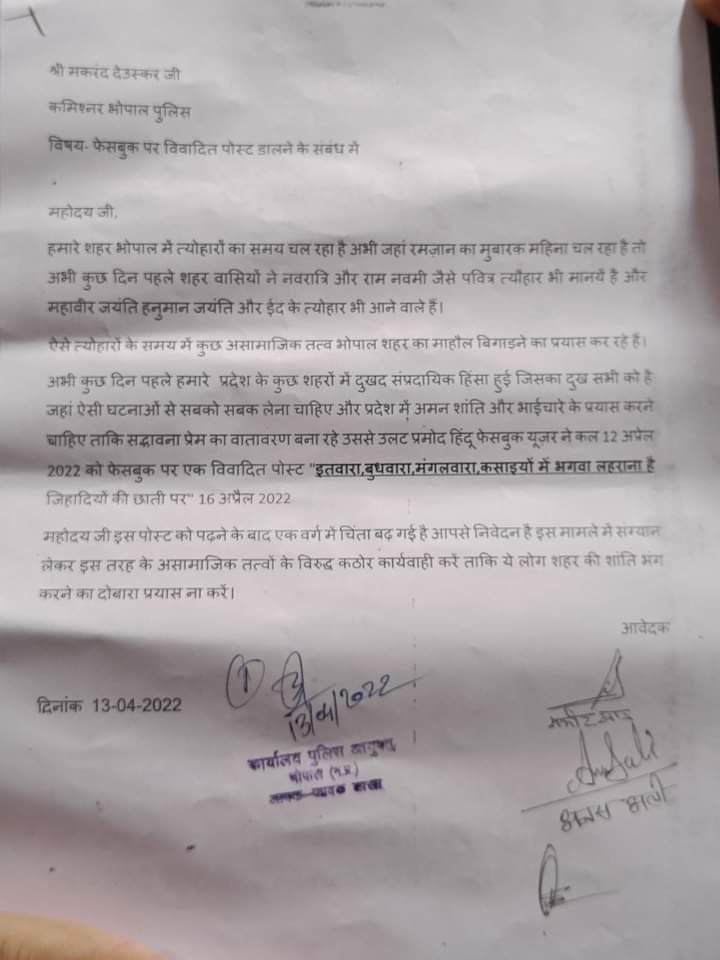 श्री मकरंद देउस्कर जी
कमिश्नर भोपाल पुलिस
विषय- फेसबुक पर विवादित पोस्ट डालने के संबंध में
महोदय जी,
हमारे शहर भोपाल में त्योहारों का समय चल रहा है अभी जहां रमज़ान का मुबारक महिना चल रहा है तो
अभी कुछ दिन पहले शहर वासियों ने नवरात्रि और राम नवमी जैसे पवित्र त्यौहार भी मानयें है और
महावीर जयंति हनुमान जयंति और ईद के त्योहार भी आने वाले हैं।
ऐसे त्योहारों के समय में कुछ असामाजिक तत्व भोपाल शहर का माहौल बिगाड़ने का प्रयास कर रहे हैं।
अभी कुछ दिन पहले हमारे प्रदेश के कुछ शहरों में दुखद संप्रदायिक हिंसा हुई जिसका दुख सभी को है
जहां ऐसी घटनाओं से सबको सबक लेना चाहिए और प्रदेश में अमन शांति और भाईचारे के प्रयास करने
चाहिए ताकि सद्भावना प्रेम का वातावरण बना रहे उससे उलट प्रमोद हिंदू फेसबुक यूज़र ने कल 12 अप्रेल
2022 को फेसबुक पर एक विवादित पोस्ट "इतवारा,बुधवारा,मंगलवारा,कसाइयों में भगवा लहराना है
जिहादियों की छाती पर" 16 अप्रैल 2022
महोदय जी इस पोस्ट को पढ़ने के बाद एक वर्ग में चिंता बढ़ गई है आपसे निवेदन है इस मामले में संग्यान
लेकर इस तरह के असामाजिक तत्वों के विरुद्ध कठोर कार्यवाही करें ताकि ये लोग शहर की शांति भंग
करने का दोबारा प्रयास ना करें।
आवेदक
दिनांक 13-04-2022
13/04/2022
कार्यालय पुलिस आयुक्त,
भोपाल (म.प्र.)
शाखा
अनस अली